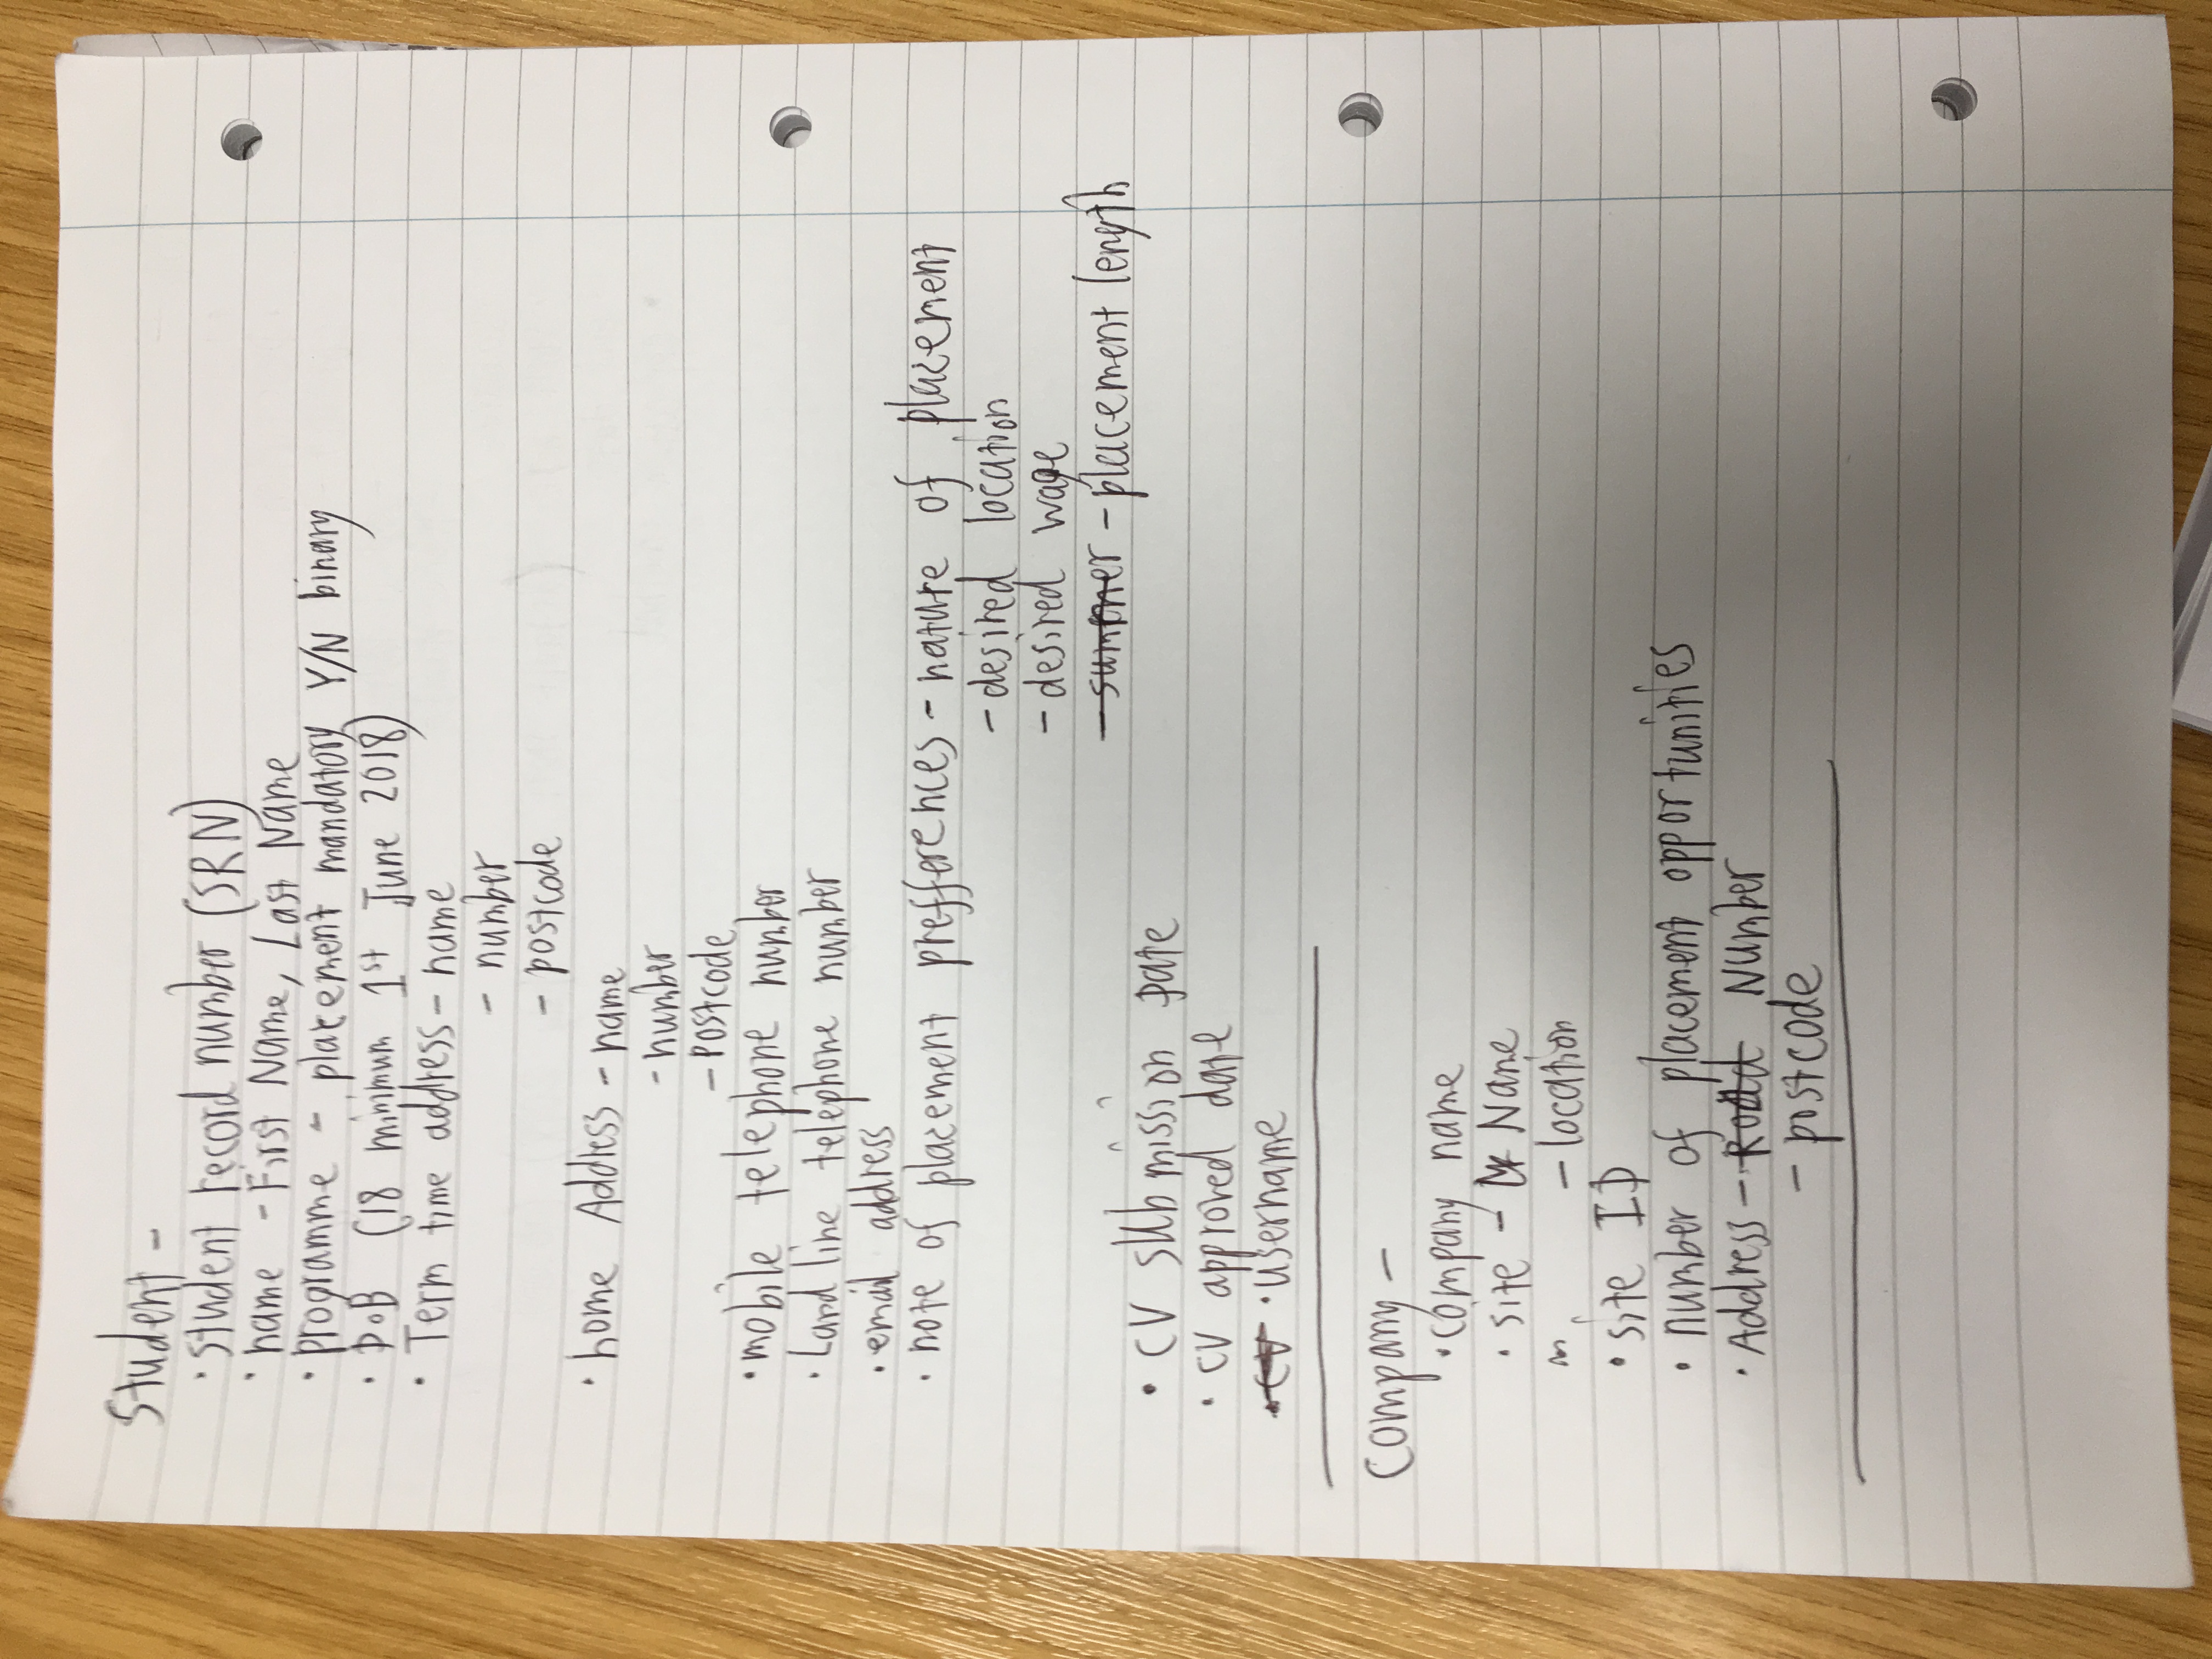 Student -
· student record number (SRN)
· name - First Name, Last Name
· programme - placement mandatory Y/N binary
· DoB (18 minimum 1st June 2018)
· Term time address - name
- number
- postcode
· home Address - name
- number
- Postcode
· mobile telephone number
· Land line telephone number
· email address
· note of placement prefferences - nature of placement
- desired location
- desired wage
- summer - placement length
· CV submission Date
· CV approved date
· CV · username
Company -
· company name
· site - Name
- location
· site ID
· number of placement opportunities
· Address - Road Number
- postcode